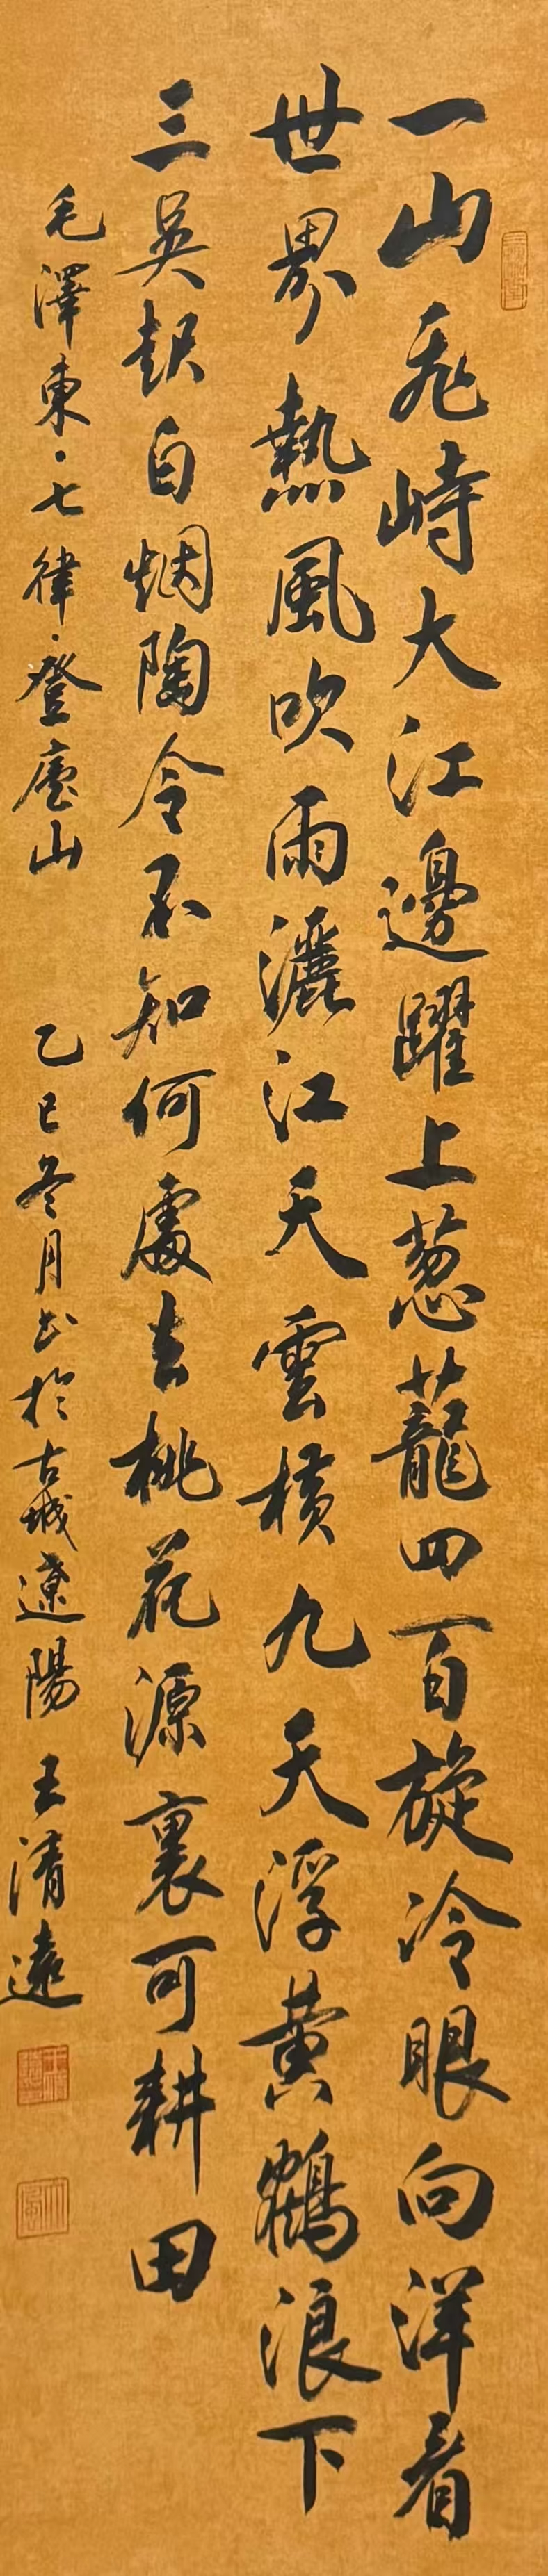 一山飛峙大江邊躍上葱蘢四百旋冷眼向洋看
世界熱風吹雨灑江天雲橫九天浮黄鶴浪下
三吴起白烟陶令不知何處去桃花源裏可耕田
毛澤東·七律·登廬山 乙巳冬月书於古城遼陽 王清遠